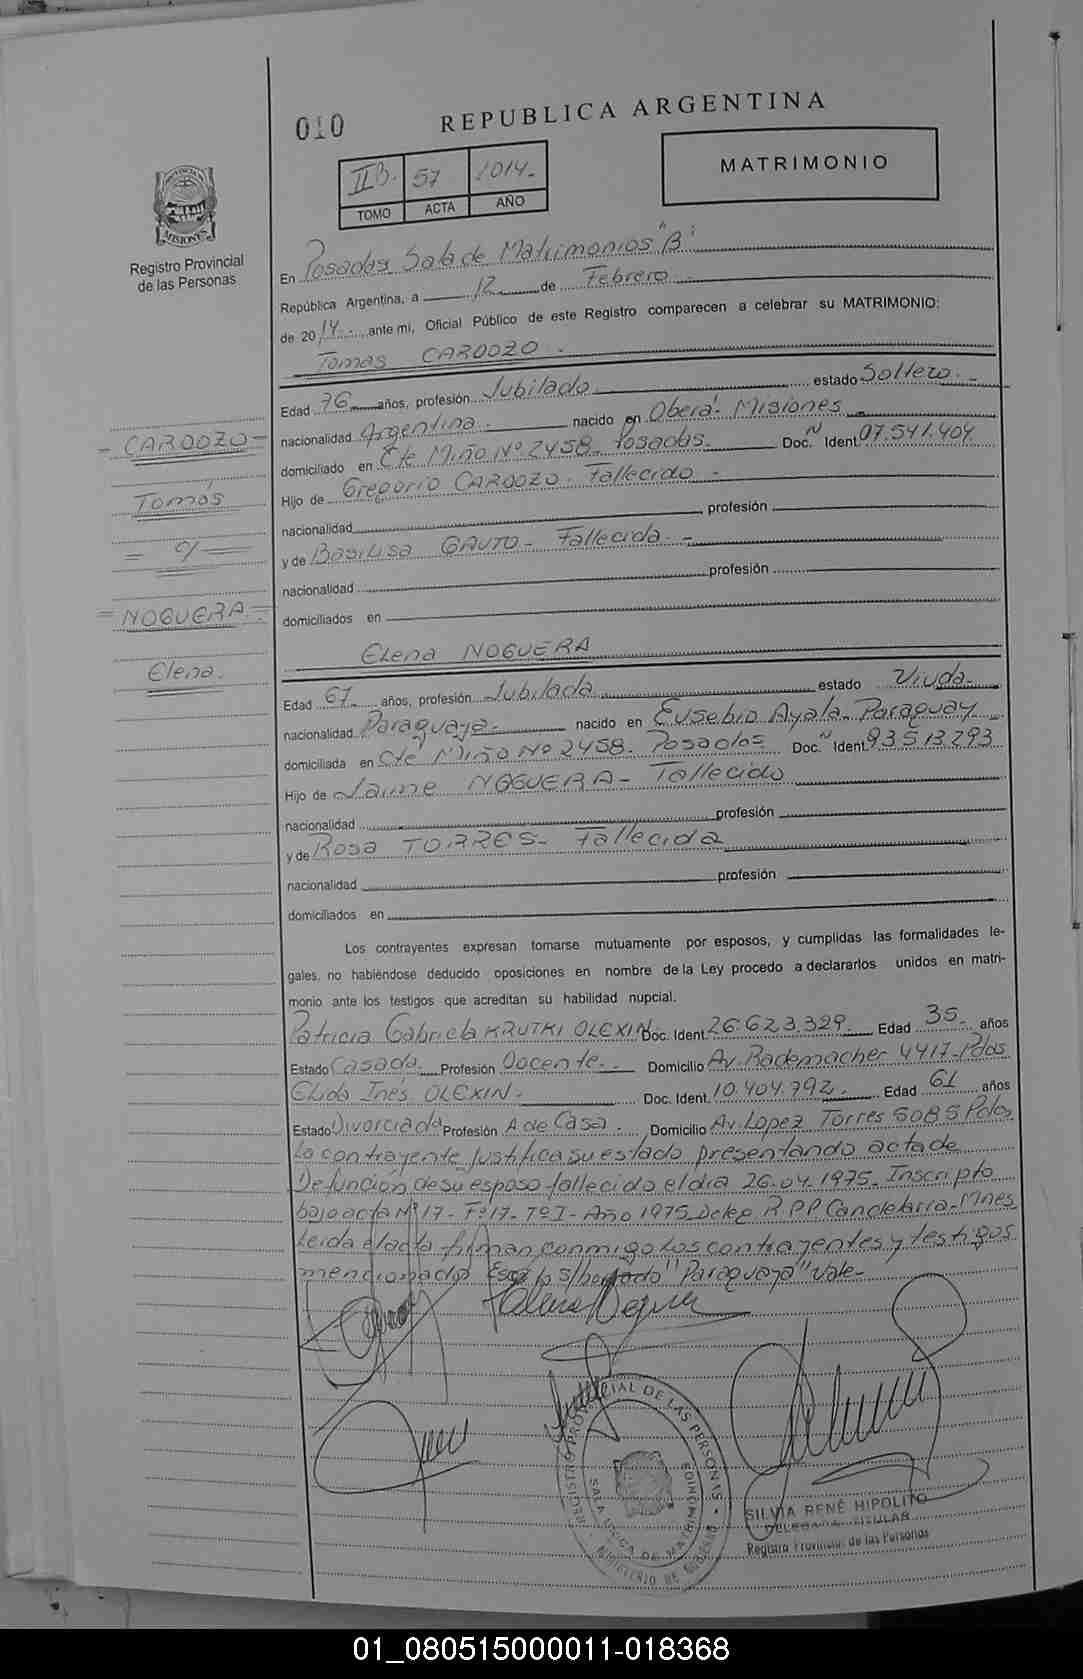 010
REPUBLICA ARGENTINA
MATRIMONIO
IIB. 57 2014.
TOMO ACTA AÑO
PROVINCIA DE
MISIONES
Registro Provincial
de las Personas
En Posadas Sala de Matrimonios "B"
República Argentina, a 12 de Febrero
de 2014 ante mi, Oficial Público de este Registro comparecen a celebrar su MATRIMONIO:
Tomas CARDOZO.
Edad 76 años, profesión Jubilado estado Soltero.
nacionalidad Argentina. nacido en Oberá- Misiones
domiciliado en Cte Miño Nº 2458. Posadas. Doc. Ident. 07.541.404
Hijo de Gregorio CARDOZO. Fallecido
nacionalidad profesión
y de Basilisa GAUTO- Fallecida.
nacionalidad profesión
domiciliados en
CARDOZO
Tomás
NOGUERA
Elena.
Elena NOGUERA
Edad 67 años, profesión Jubilada estado Viuda
nacionalidad Paraguaya. nacido en Eusebio Ayala- Paraguay
domiciliada en Cte Miño Nº 2458. Posadas Doc. Ident. 93513293
Hijo de Jaime NOGUERA- Fallecido
nacionalidad profesión
y de Rosa TORRES- Fallecida
nacionalidad profesión
domiciliados en
Los contrayentes expresan tomarse mutuamente por esposos, y cumplidas las formalidades le-
gales, no habiéndose deducido oposiciones en nombre de la Ley procedo a declararlos unidos en matri-
monio ante los testigos que acreditan su habilidad nupcial.
Patricia Gabriela KRUTKI OLEXIN Doc. Ident. 26.623.329. Edad 35- años
Estado Casada. Profesión Docente. Domicilio Av. Rademacher 4417- Pdas
Elida Inés OLEXIN. Doc. Ident. 10.404.792. Edad 61 años
Estado Divorciada Profesión A de Casa. Domicilio Av. Lopez Torres 5085 Pdas.
La contrayente justifica su estado presentando acta de
Defunción de su esposo fallecido el día 26.04.1975. Inscripto
bajo acta Nº 17- Fº 17- Tº I- Año 1975 Deleg. R.P.P. Candelaria- Mnes
Leida el acta firman conmigo los contrayentes y testigos
mencionados. S/borrado "Paraguaya" Vale-
REGISTRO PROVINCIAL DE LAS PERSONAS
SALA UNICA DE MATRIMONIOS
MINISTERIO DE GOBIERNO
SILVIA RENÉ HIPOLITO
DELEGADA TITULAR
Registro Provincial de las Personas
01_080515000011-018368